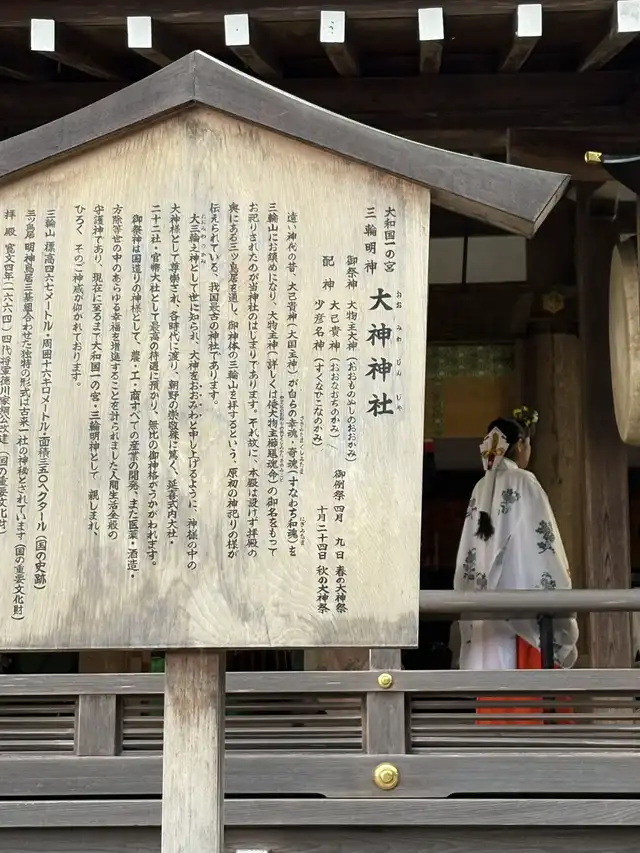 大和国一の宮
三輪明神
大神神社
おおみわじんじゃ
御祭神 大物主大神（おおものぬしのおおかみ）
配神 大己貴神（おおなむちのかみ）
少彦名神（すくなひこなのかみ）
御例祭 四月 九日 春の大神祭
十月二十四日 秋の大神祭
遠い神代の昔、大己貴神（大国主神）が自らの幸魂・奇魂（すなわち和魂）を
三輪山にお鎮めになり、大物主神（詳しくは倭大物主櫛𤭖魂命）の御名をもって
お祀りされたのが当神社のはじまりであります。それ故に、本殿は設けず拝殿の
奥にある三ツ鳥居を通し、御神体の三輪山を拝するという、原初の神祀りの様が
伝えられている、我国最古の神社であります。
大三輪之神として世に知られ、大神をおおみわと申し上げるように、神様の中の
大神様として尊崇され、各時代に渡り、朝野の崇敬殊に篤く、延喜式内大社・
二十二社・官幣大社として最高の待遇に預かり、無比の御神格がうかがわれます。
御祭神は国造りの神様として、農・工・商すべての産業の開発、また医薬・酒造・
方除等世の中のあらゆる幸福を増進することを計られました人間生活全般の
守護神であり、現在に至るまで大和国一の宮・三輪明神として 親しまれ、
ひろく そのご神威が仰がれております。
三輪山 標高四六七メートル・周囲十六キロメートル・面積三五〇ヘクタール（国の史跡）
三ツ鳥居 明神鳥居三基組合わせた独特の形式は古来一社の神秘とされています（国の重要文化財）
拝殿 寛文四年（一六六四）四代将軍徳川家綱公改建（国の重要文化財）